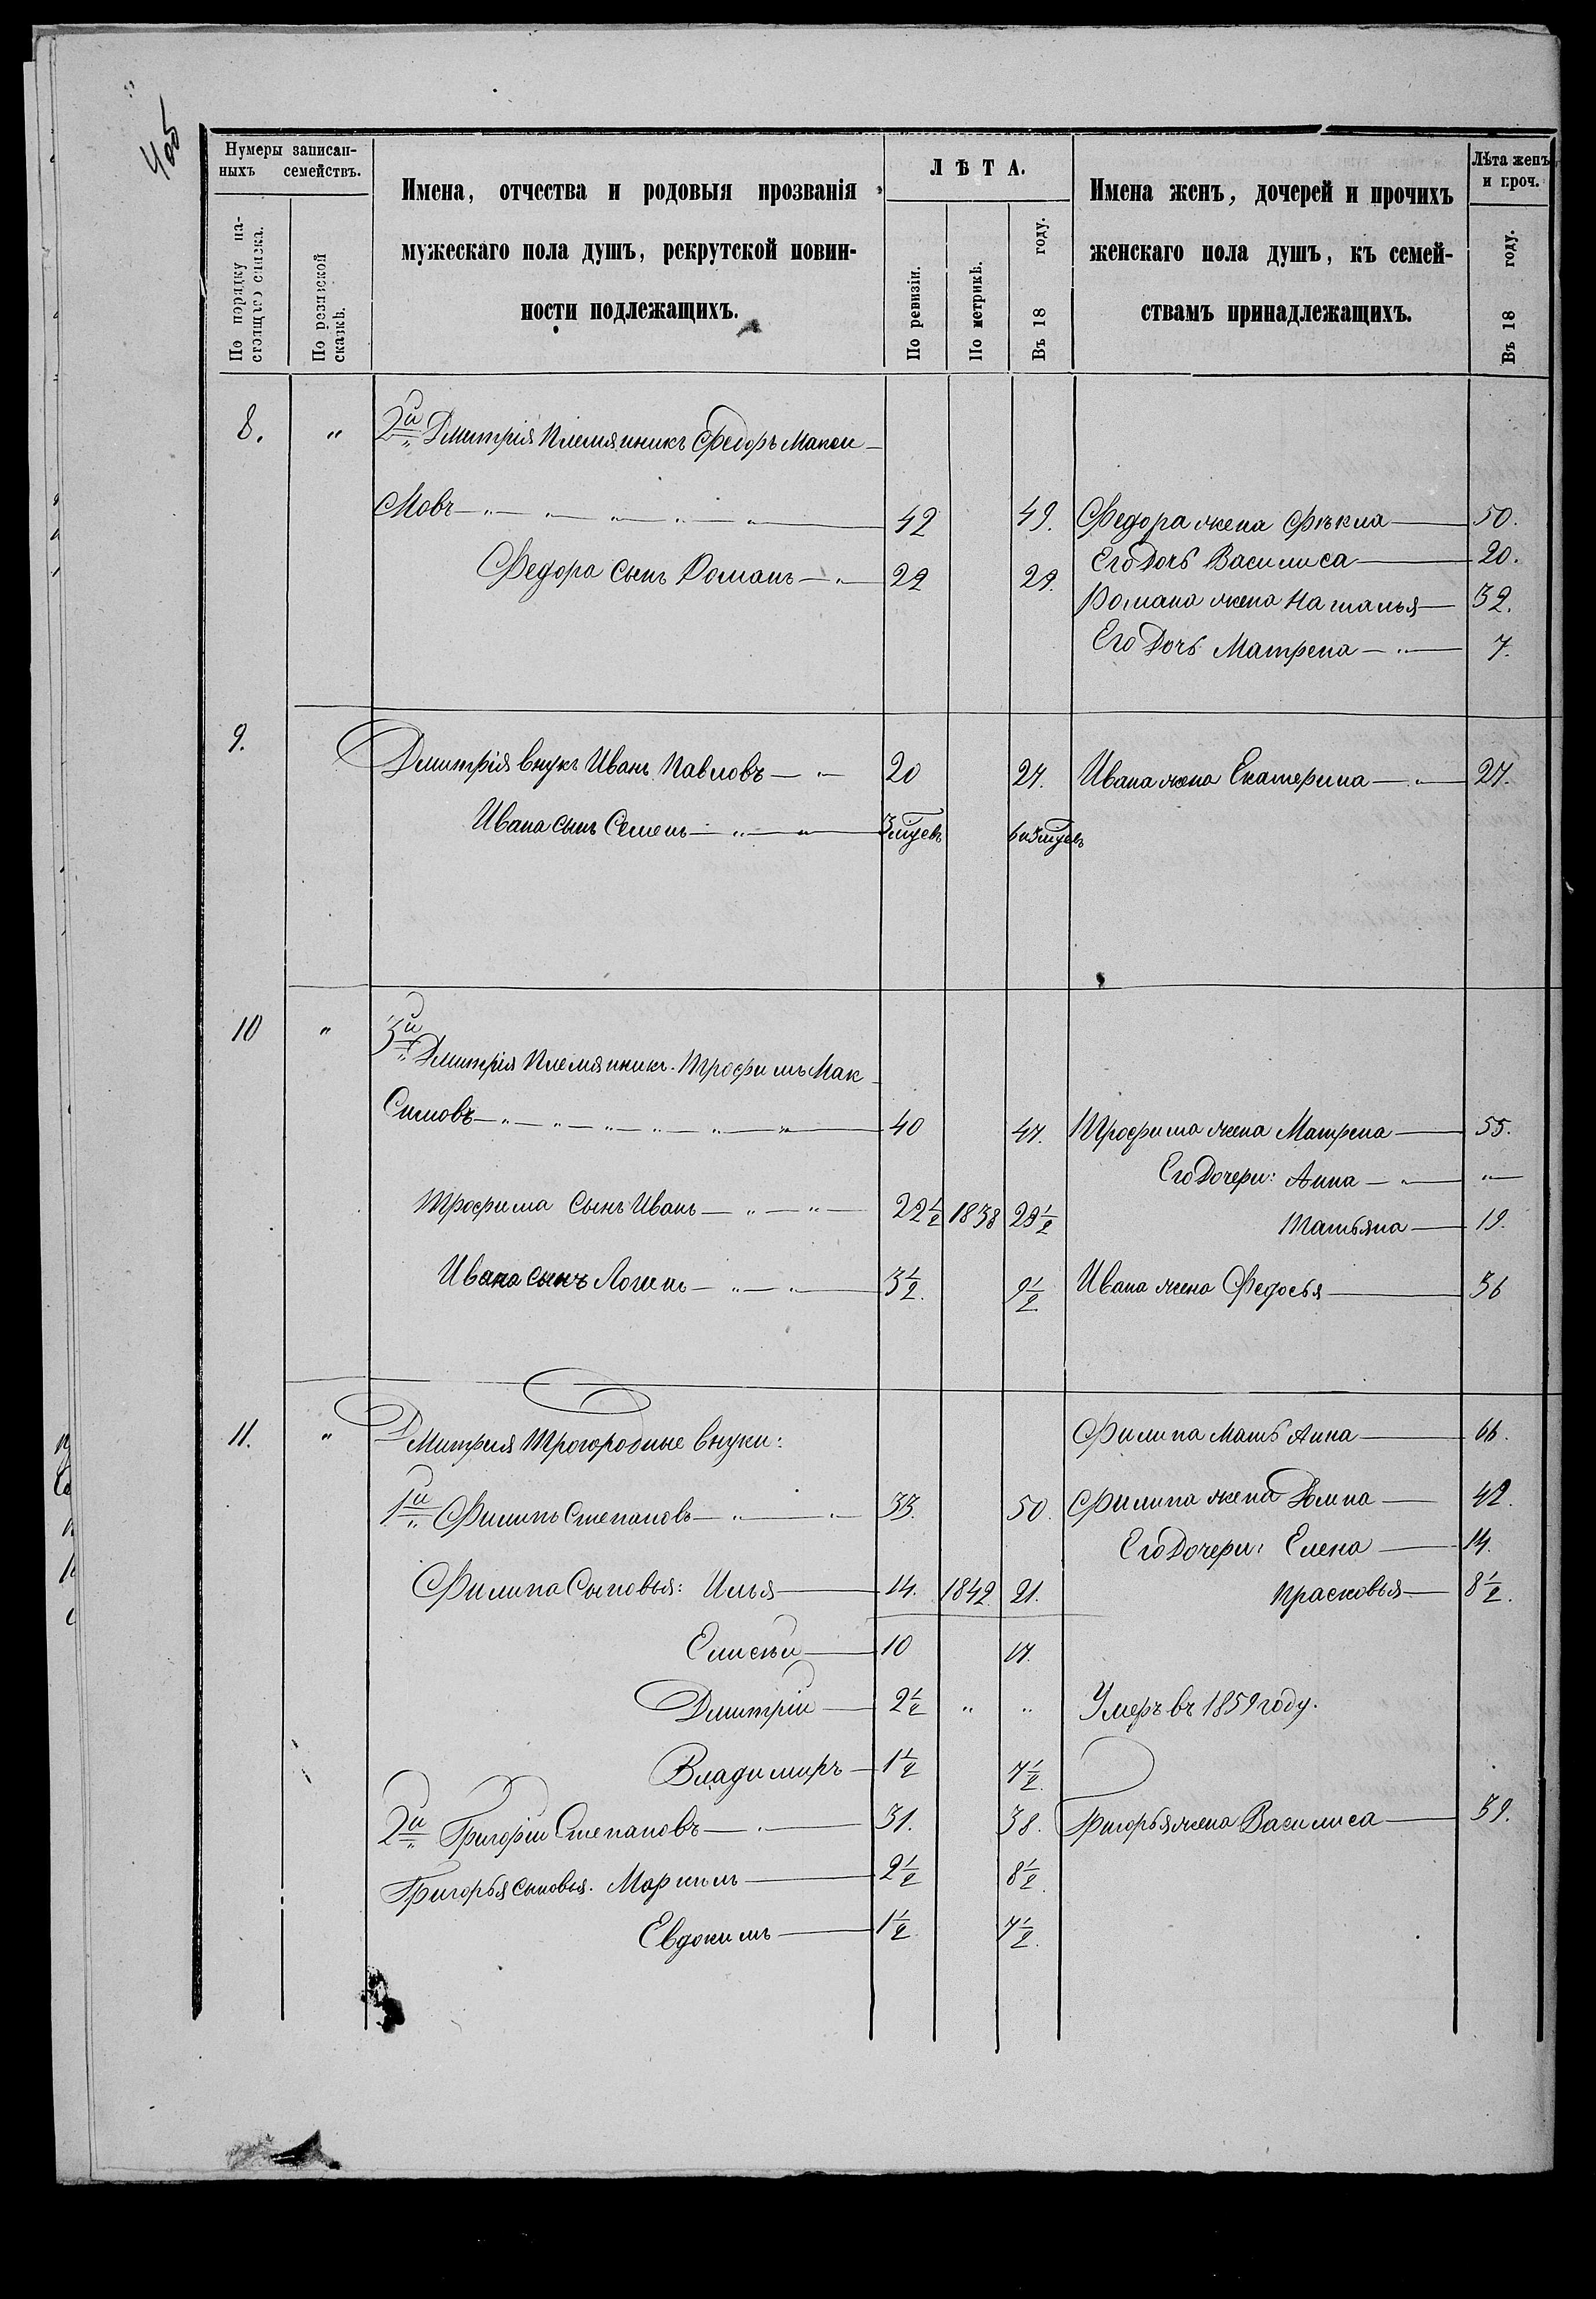 4об
Нумеры записан-
ныхъ семействъ.
По порядку на-
стоящаго списка.
По ревизской
сказкѣ.
Имена, отчества и родовыя прозванія
мужескаго пола душъ, рекрутской повин-
ности подлежащихъ.
ЛѢТА.
По ревизіи.
По метрикѣ.
Въ 18 году.
Имена женъ, дочерей и прочихъ
женскаго пола душъ, къ семей-
ствамъ принадлежащихъ.
Лѣта женъ
и проч.
Въ 18 году.
8. " 2й Дмитрія Племянникъ Федоръ Макси-
мовъ 42 49. Федора жена Фекла 50.
Федора сынъ Романъ 22 29. Его Дочь Василиса 20.
Романа жена Наталья 32.
Его Дочь Матрена 7.
9. Дмитрія внукъ Иванъ Павловъ 20 27. Ивана жена Екатерина 27.
Ивана сынъ Семенъ 3 мѣсцевъ 6 и 3 мѣсцевъ
10 " 3й Дмитрія Племянникъ Трофимъ Мак-
симовъ 40 47. Трофима жена Матрена 55.
Его Дочери: Анна "
Трофима сынъ Иванъ 22½ 1838 29½ Татьяна 19.
Ивана сынъ Логинъ 3½. 9½ Ивана жена Федосья 36
11. " Дмитрия Трогородные внуки: Филипа Мать Анна 66.
1й Филипъ Степановъ 33. 50. Филипа жена Домна 42.
Его Дочери: Елена 14.
Филипа Сыновья: Илья 14. 1842 21. Прасковья 8½.
Елисѣй 10 17.
Дмитрій 2½ " " Умеръ въ 1859 году.
Владимиръ 1½ 7½.
2й Григорій Степановъ 31. 38. Григорья жена Василиса 39.
Григорья сыновья. Маркелъ 2½ 8½.
Евдокимъ 1½ 7½.